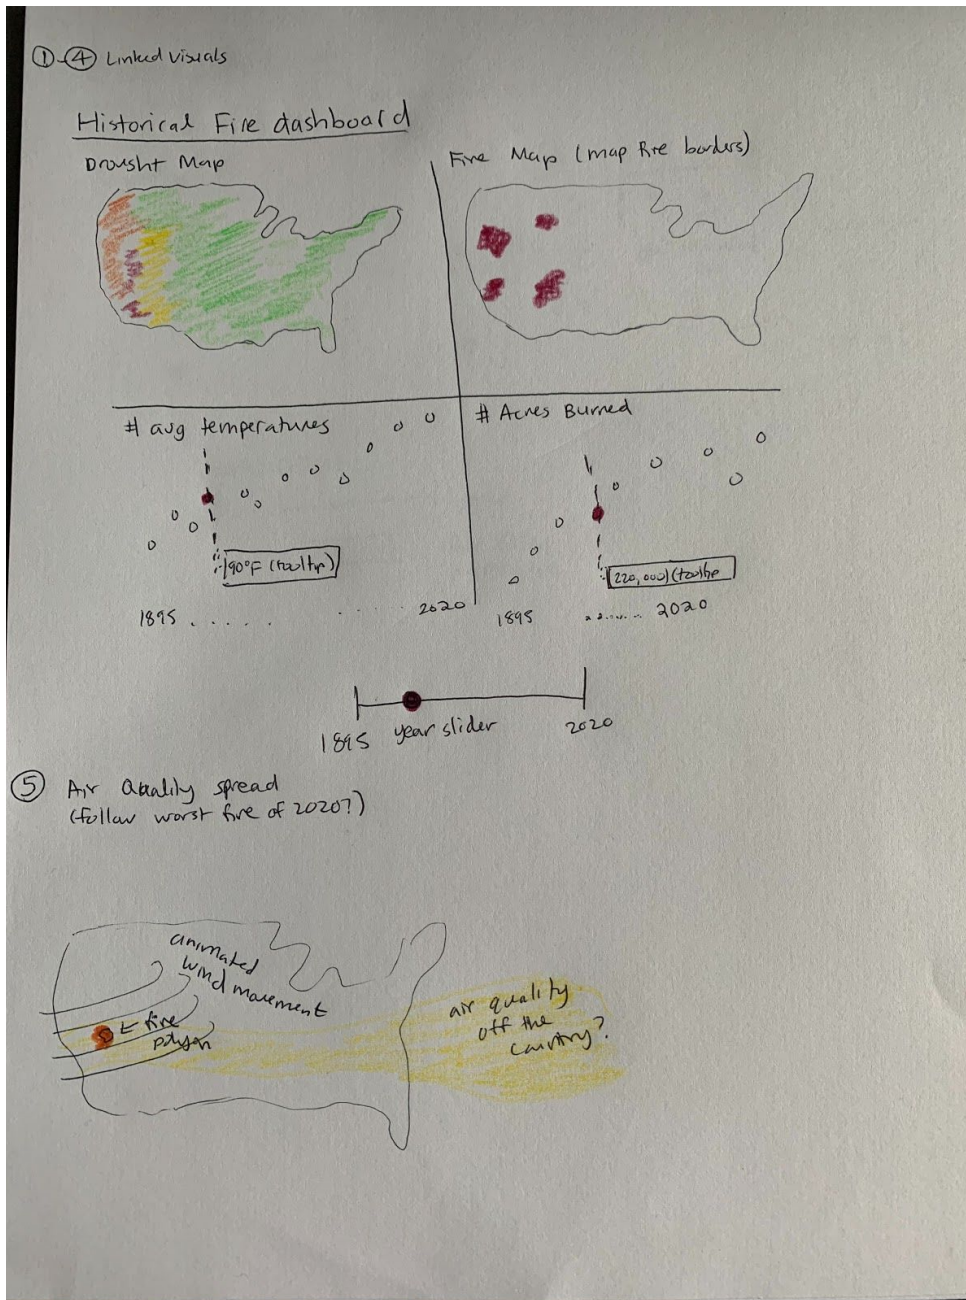 ①-④ Linked visuals
Historical Fire dashboard
Drought Map
Fire Map (map fire borders)
# avg temperatures
90°F (tooltip)
1895 . . . . . . . . . . 2020
# Acres Burned
220,000 (tooltip
1895 . . . . . . . . 2020
1895 year slider 2020
⑤ Air Quality spread
(follow worst fire of 2020?)
animated
wind movement
← fire
polygon
air quality
off the
country?